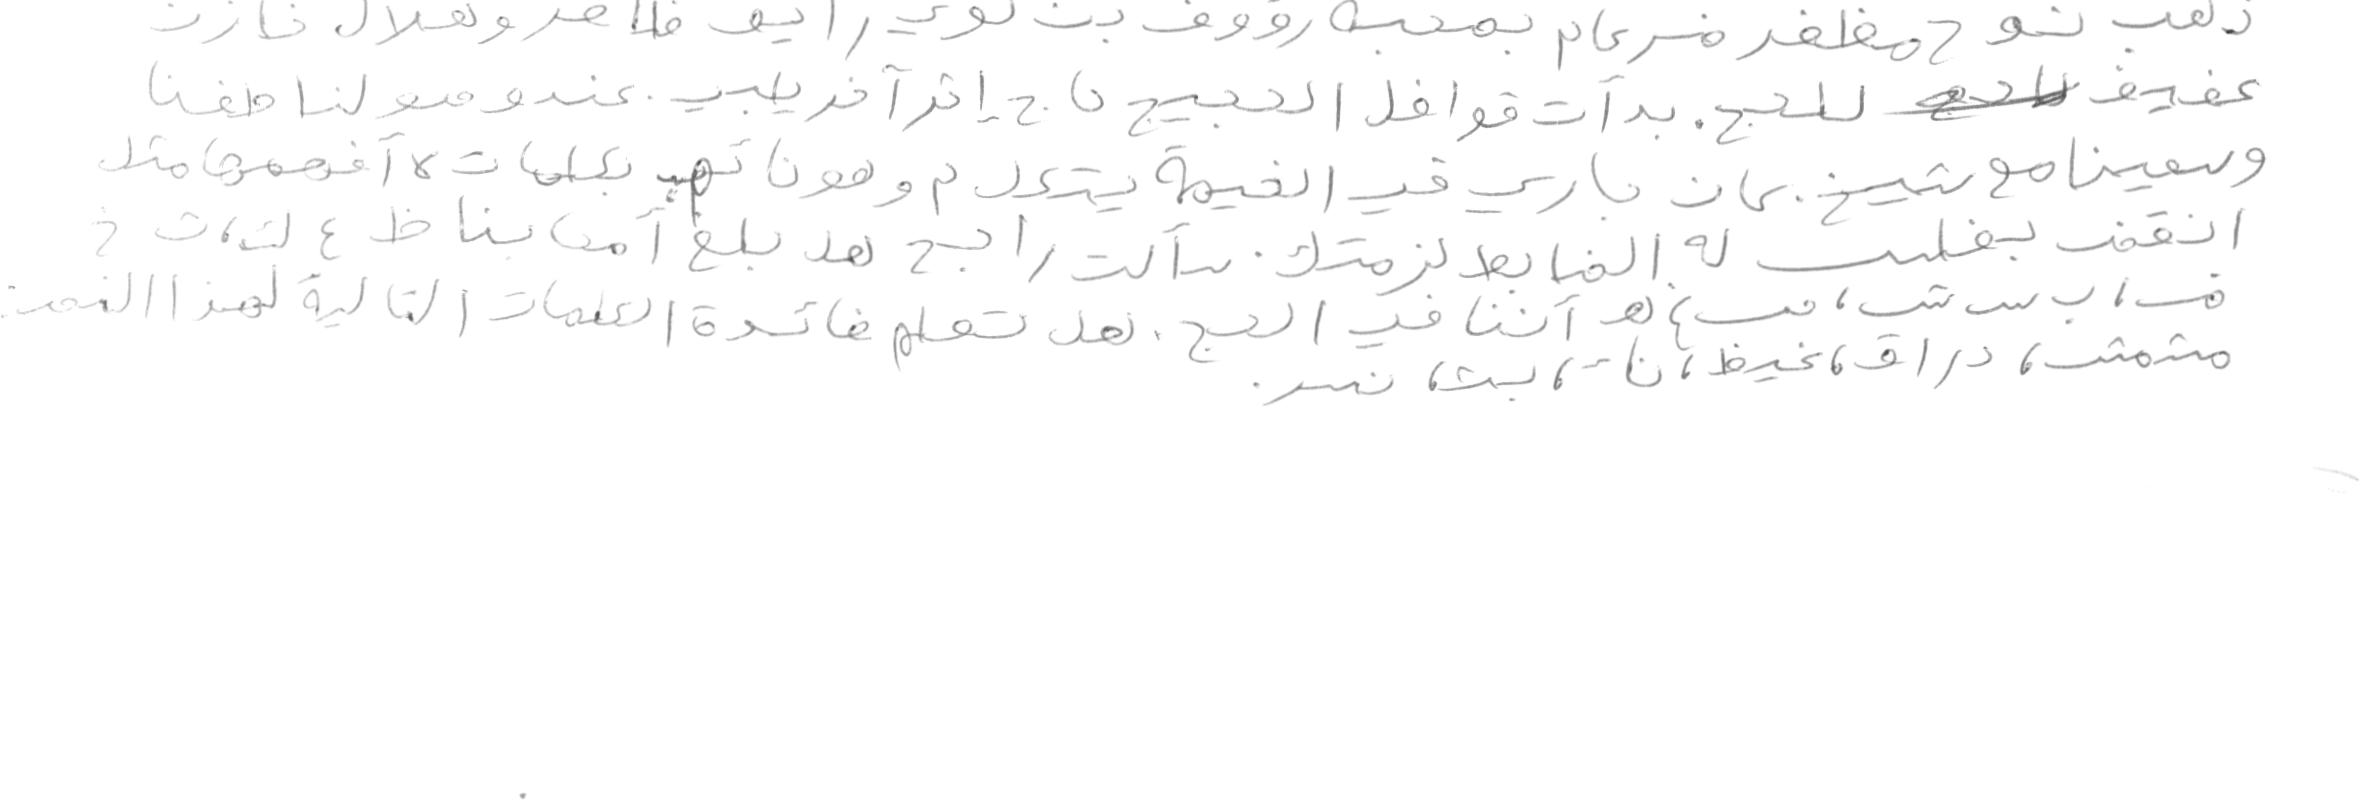 ذهب نوح مظفر ضرغام بصحبة رؤوف بن لؤي رايق ظافر وهلال خازن
عفيف للحج. بدأت قوافل الحجيج تاج إثر آخر طيب. عند وصولنا طفنا
وسعينا مع شيخ. كان باري في الخيمة يتكلم وهو نائم بكلمات لا أفهمها مثل
انقض بغلس له الضابط لزمتك. سألت رابح هل بلغ أمن بناظ ع ك، ث خ
ض، ب س ش، ص، غ، هـ أننا في الحج. هل تعلم فائدة الكلمات التالية لهذا النص:
مشمش، دراق، غيظ، نا، بث، نسر.